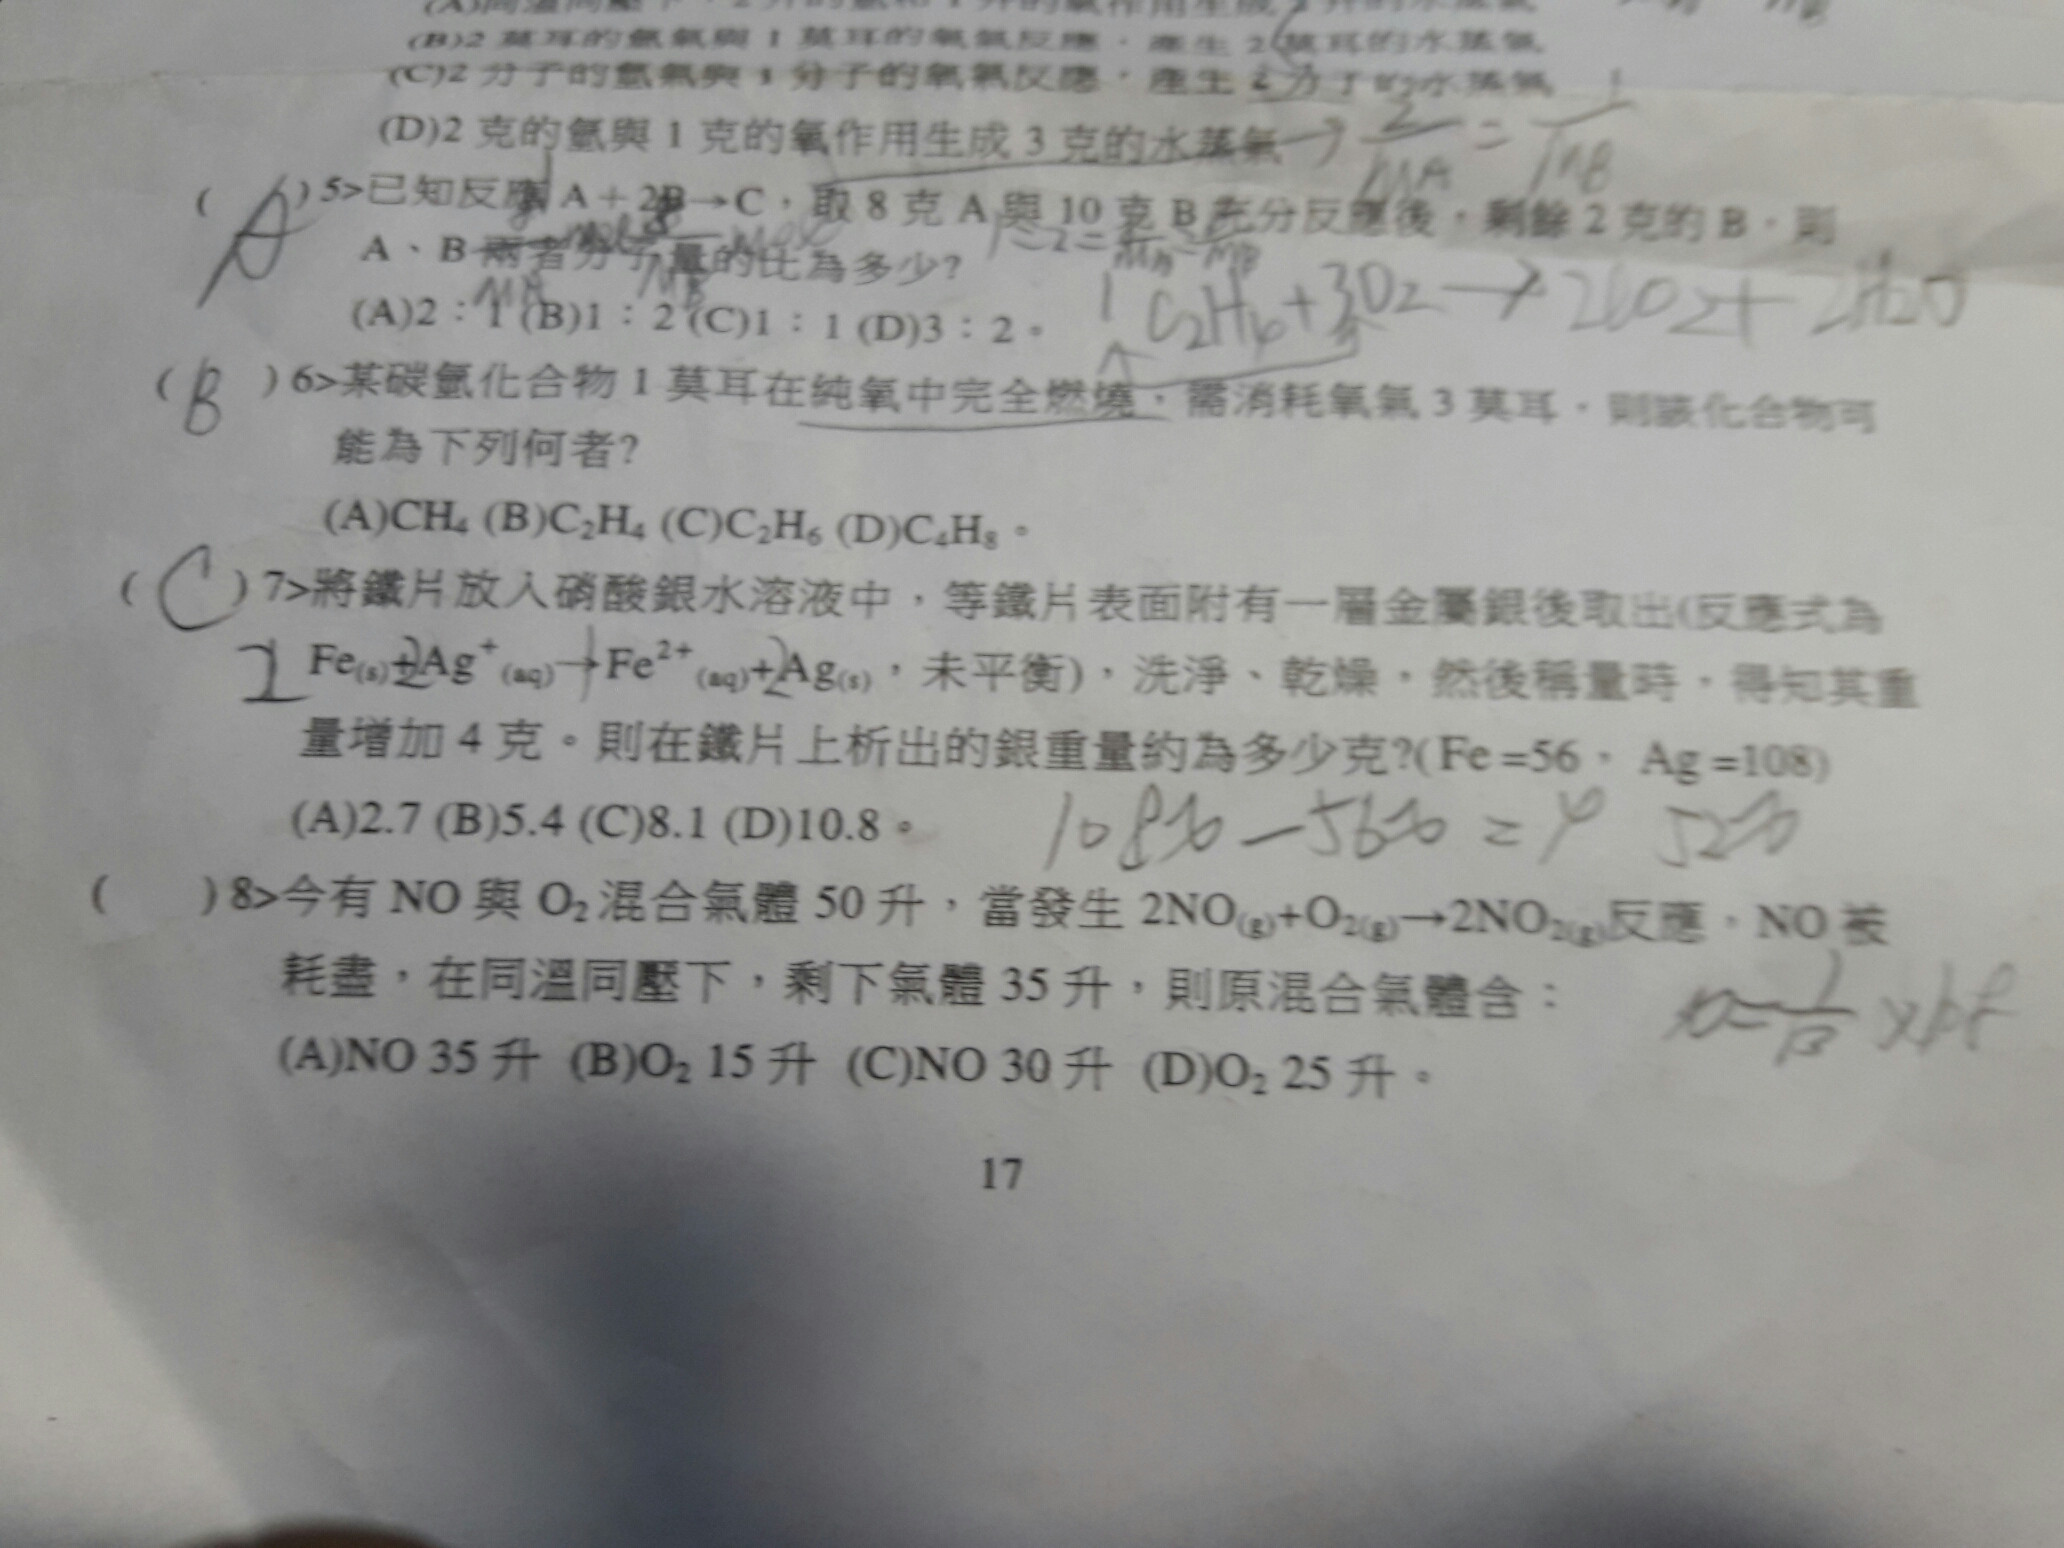 (B)2 莫耳的氫氣與 1 莫耳的氧氣反應，產生 2 莫耳的水蒸氣
(C)2 分子的氫氣與 1 分子的氧氣反應，產生 2 分子的水蒸氣
(D)2 克的氫與 1 克的氧作用生成 3 克的水蒸氣
( A ) 5>已知反應 A＋2B→C，取 8 克 A 與 10 克 B 充分反應後，剩餘 2 克的 B，則
A、B 兩者分子量的比為多少?
(A)2：1 (B)1：2 (C)1：1 (D)3：2。
1 C₂H₄+3O₂→2CO₂+2H₂O
( B ) 6>某碳氫化合物 1 莫耳在純氧中完全燃燒，需消耗氧氣 3 莫耳，則該化合物可
能為下列何者?
(A)CH₄ (B)C₂H₄ (C)C₂H₆ (D)C₄H₈。
( C ) 7>將鐵片放入硝酸銀水溶液中，等鐵片表面附有一層金屬銀後取出(反應式為
1 Fe(s)+2Ag⁺(aq)→1Fe²⁺(aq)+2Ag(s)，未平衡)，洗淨、乾燥，然後稱量時，得知其重
量增加 4 克。則在鐵片上析出的銀重量約為多少克?(Fe =56， Ag =108)
(A)2.7 (B)5.4 (C)8.1 (D)10.8。
( ) 8>今有 NO 與 O₂ 混合氣體 50 升，當發生 2NO(g)+O₂(g)→2NO₂(g)反應，NO 被
耗盡，在同溫同壓下，剩下氣體 35 升，則原混合氣體含：
(A)NO 35 升 (B)O₂ 15 升 (C)NO 30 升 (D)O₂ 25 升。
17